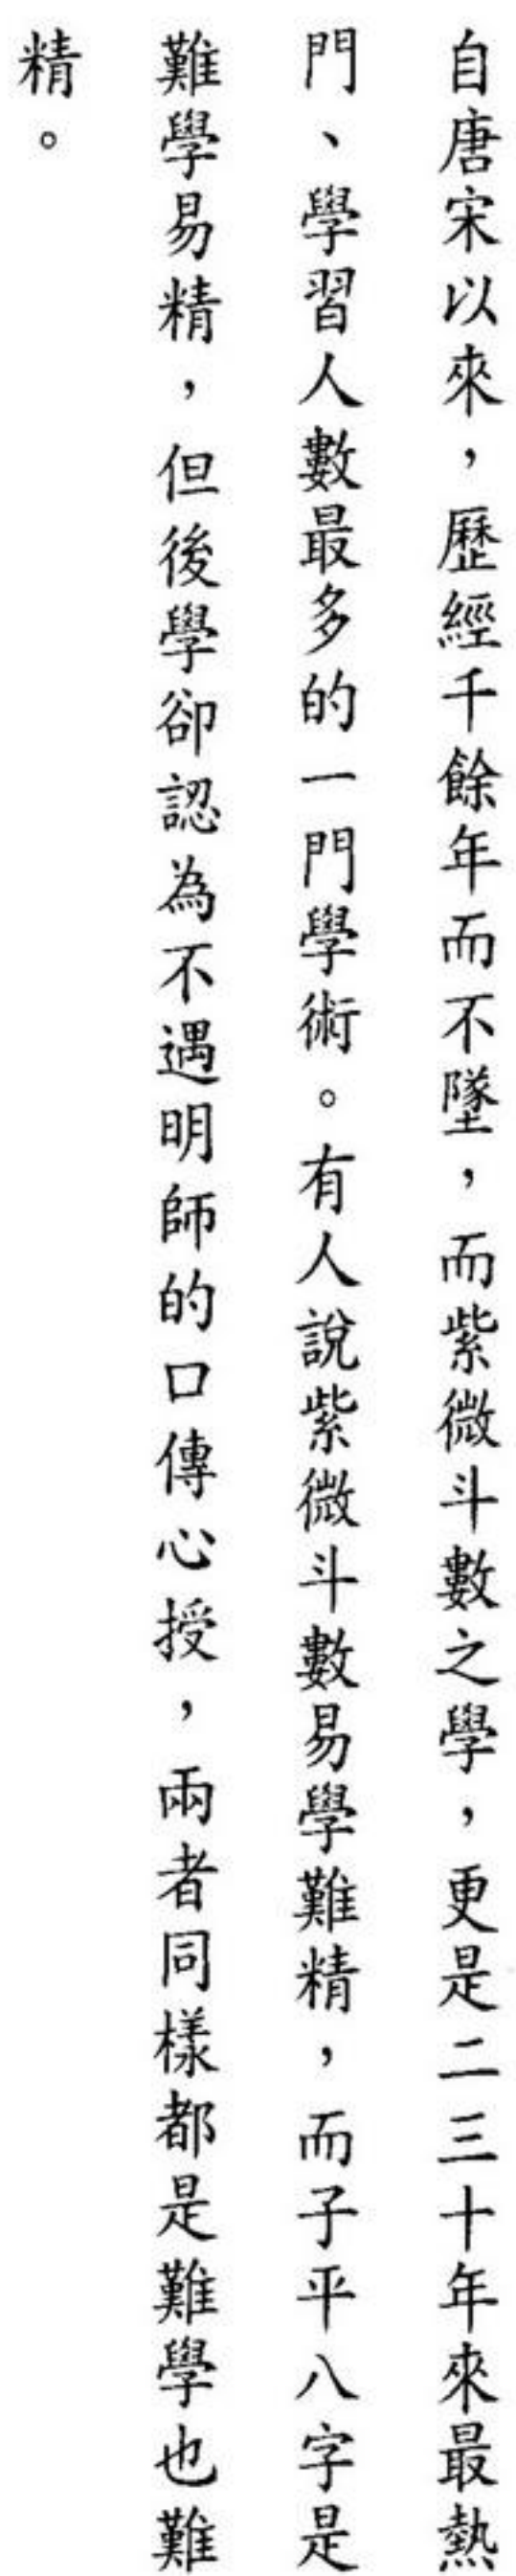 自唐宋以來，歷經千餘年而不墜，而紫微斗數之學，更是二三十年來最熱
門、學習人數最多的一門學術。有人說紫微斗數易學難精，而子平八字是
難學易精，但後學卻認為不遇明師的口傳心授，兩者同樣都是難學也難
精。